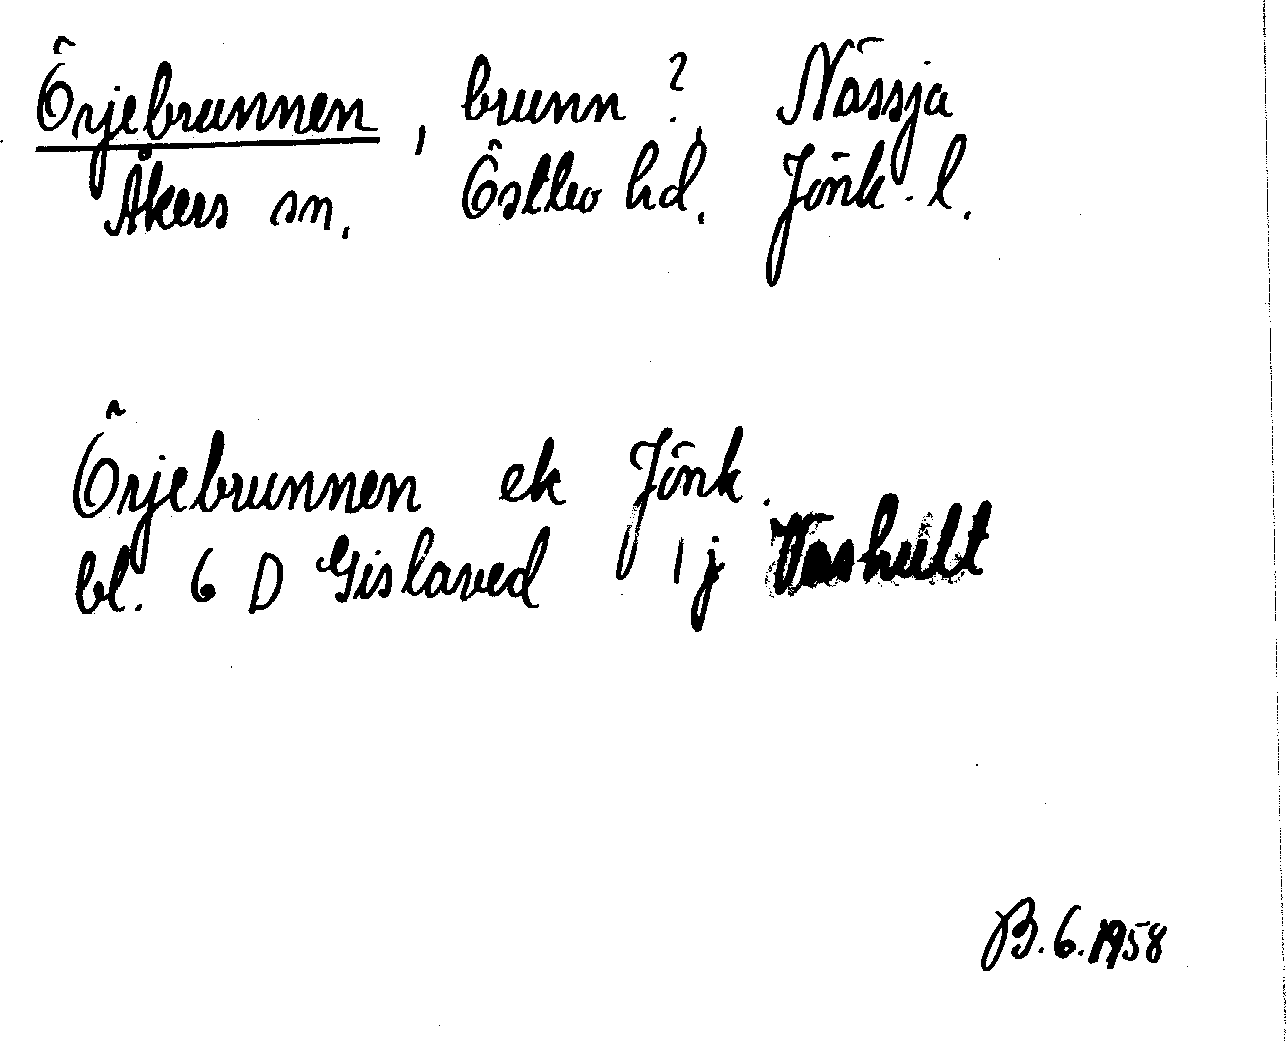 Örjebrunnen, brunn? Nässja
Åkers sn. Östbo hd. Jönk. l.
Örjebrunnen ek Jönk.
bl. 6 D Gislaved 1j Voshult
B. 6. 1958